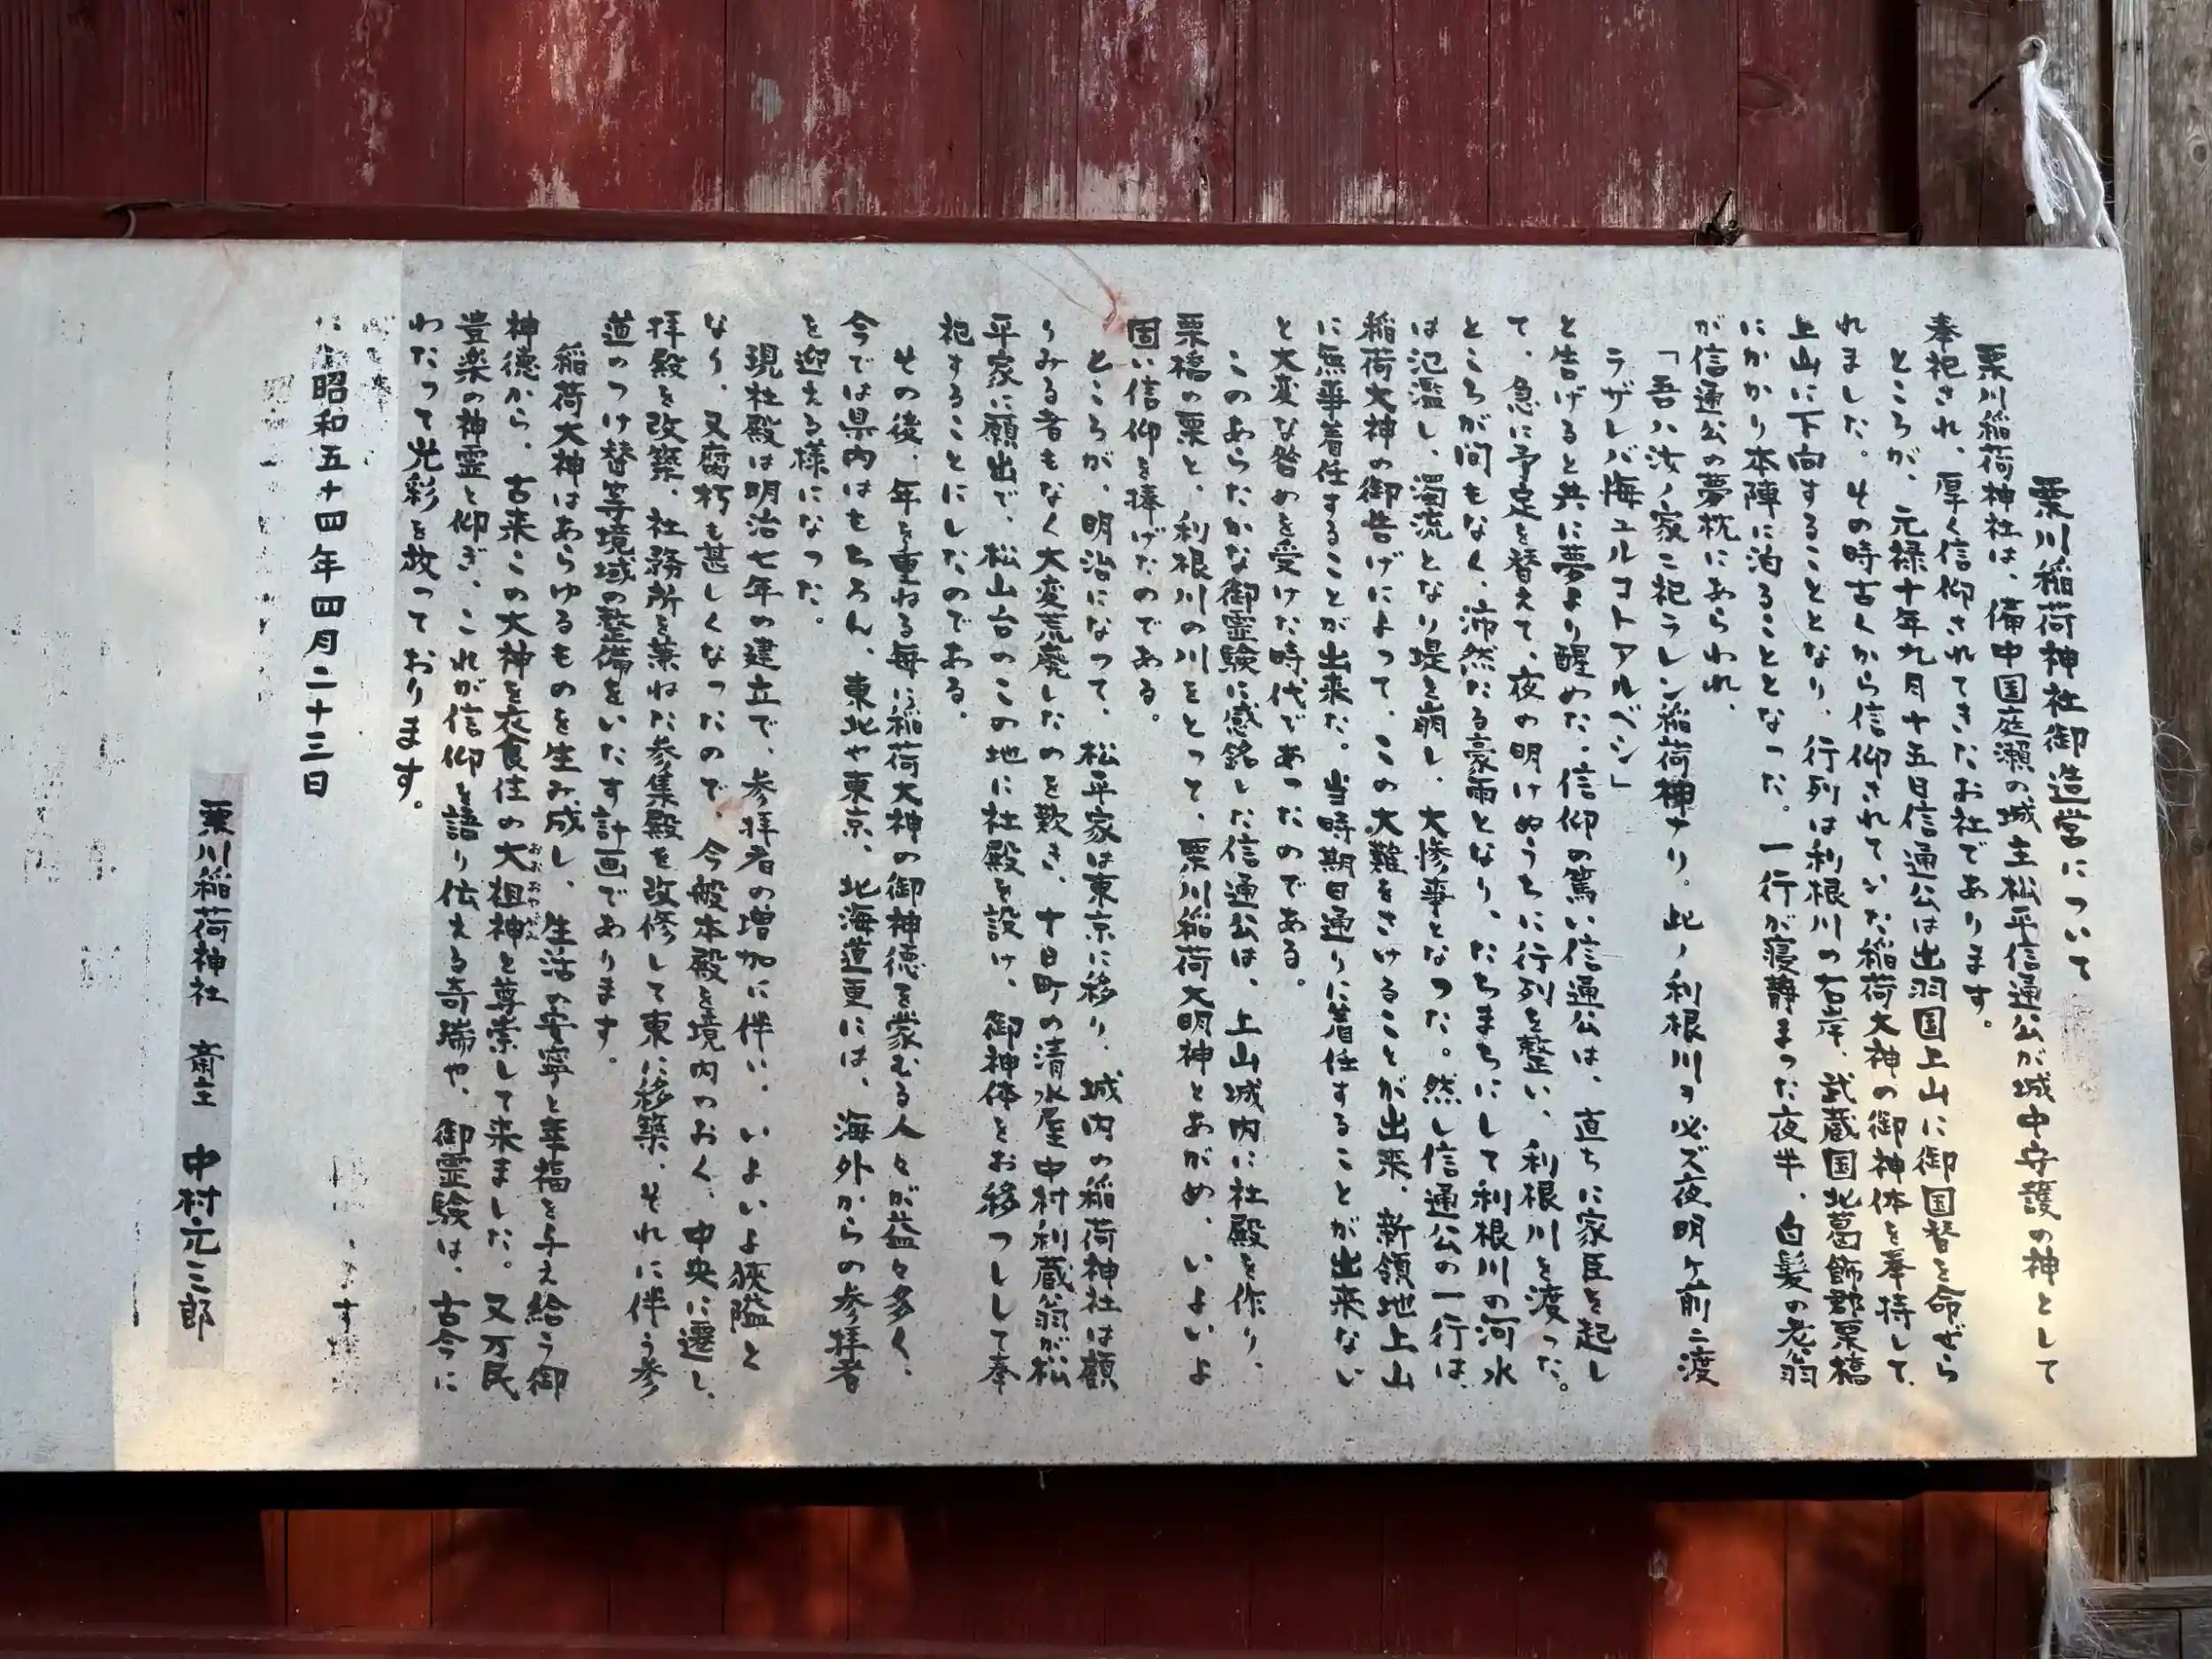 栗川稲荷神社御造営について
栗川稲荷神社は、備中国庭瀬の城主松平信通公が城中守護の神として
奉祀され、厚く信仰されてきたお社であります。
ところが、元禄十年九月十五日信通公は出羽国上山に御国替を命ぜら
れました。その時古くから信仰されていた稲荷大神の御神体を奉持して、
上山に下向することとなり、行列は利根川の右岸、武蔵国北葛飾郡栗橋
にかかり本陣に泊ることとなった。一行が寝静まった夜半、白髪の老翁
が信通公の夢枕にあらわれ、
「吾ハ汝ノ家ニ祀ラレン稲荷神ナリ。此ノ利根川ヲ必ズ夜明ケ前ニ渡
ラザレバ悔ユルコトアルベシ」
と告げると共に夢より醒めた。信仰の篤い信通公は、直ちに家臣を起し
て、急に予定を替えて、夜の明けぬうちに行列を整い、利根川を渡った。
ところが間もなく、沛然たる豪雨となり、たちまちにして利根川の河水
は氾濫し、濁流となり堤を崩し、大惨事となった。然し信通公の一行は、
稲荷大神の御告げによって、この大難をさけることが出来、新領地上山
に無事着任することが出来た。当時期日通りに着任することが出来ない
と大変な咎めを受けた時代であったのである。
このあらたかな御霊験に感銘した信通公は、上山城内に社殿を作り、
栗橋の栗と、利根川の川をとって、栗川稲荷大明神とあがめ、いよいよ
固い信仰を捧げたのである。
ところが、明治になって、松平家は東京に移り、城内の稲荷神社は顧
りみる者もなく大変荒廃したのを歎き、十日町の清水屋中村利蔵翁が松
平家に願出で、松山台のこの地に社殿を設け、御神体をお移つしして奉
祀することにしたのである。
その後、年を重ねる毎に稲荷大神の御神徳を蒙むる人々が益々多く、
今では県内はもちろん、東北や東京、北海道更には、海外からの参拝者
を迎える様になった。
現社殿は明治七年の建立で、参拝者の増加に伴い、いよいよ狭隘と
なり、又腐朽も甚しくなったので、今般本殿を境内のおく、中央に遷し、
拝殿を改築、社務所を兼ねた参集殿を改修して東に移築、それに伴う参
道のつけ替等境域の整備をいたす計画であります。
稲荷大神はあらゆるものを生み成し、生活の安寧と幸福を与え給う御
神徳から、古来この大神を衣食住の大祖神と尊崇して来ました。又万民
豊楽の神霊と仰ぎ、これが信仰を語り伝える奇瑞や、御霊験は、古今に
わたって光彩を放っております。
昭和五十四年四月二十三日
栗川稲荷神社　斎主　中村元三郎